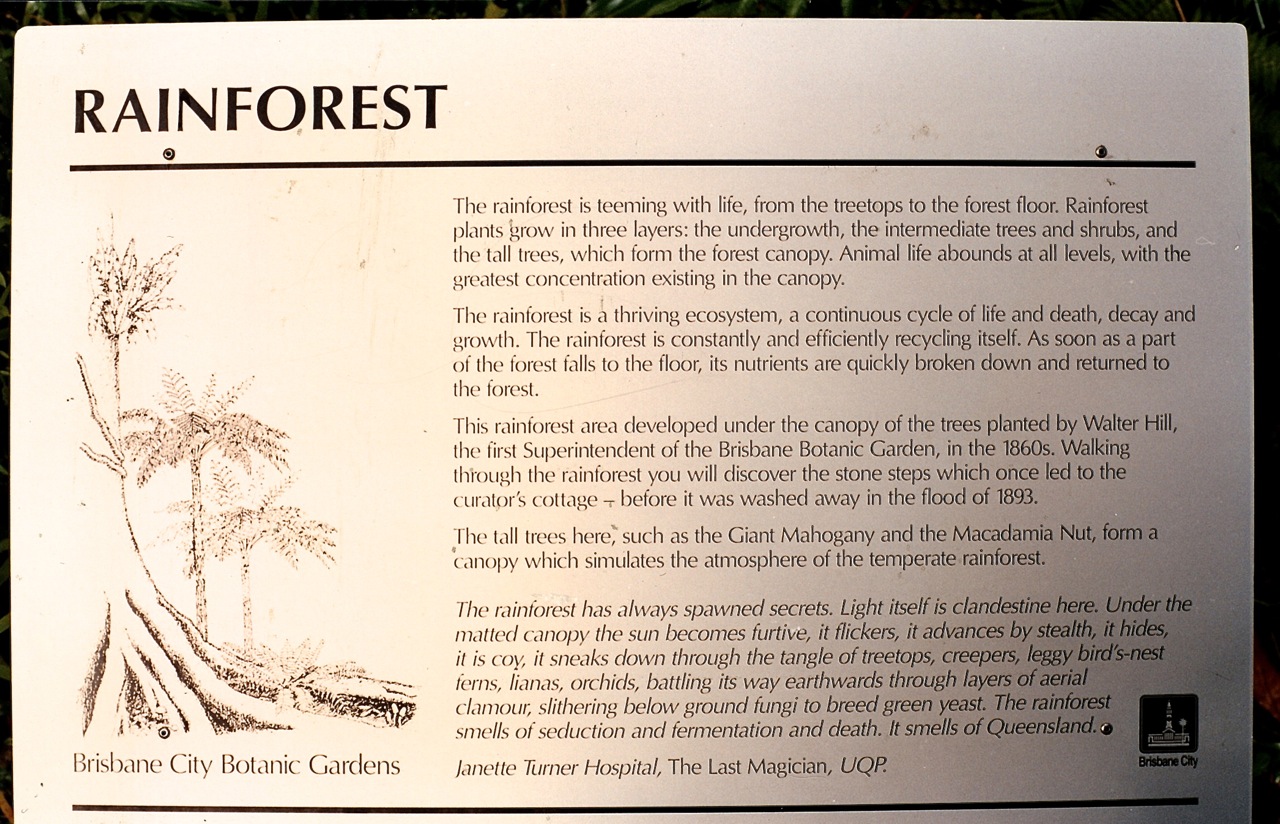 RAINFOREST
The rainforest is teeming with life, from the treetops to the forest floor. Rainforest
plants grow in three layers: the undergrowth, the intermediate trees and shrubs, and
the tall trees, which form the forest canopy. Animal life abounds at all levels, with the
greatest concentration existing in the canopy.
The rainforest is a thriving ecosystem, a continuous cycle of life and death, decay and
growth. The rainforest is constantly and efficiently recycling itself. As soon as a part
of the forest falls to the floor, its nutrients are quickly broken down and returned to
the forest.
This rainforest area developed under the canopy of the trees planted by Walter Hill,
the first Superintendent of the Brisbane Botanic Garden, in the 1860s. Walking
through the rainforest you will discover the stone steps which once led to the
curator's cottage – before it was washed away in the flood of 1893.
The tall trees here, such as the Giant Mahogany and the Macadamia Nut, form a
canopy which simulates the atmosphere of the temperate rainforest.
The rainforest has always spawned secrets. Light itself is clandestine here. Under the
matted canopy the sun becomes furtive, it flickers, it advances by stealth, it hides,
it is coy, it sneaks down through the tangle of treetops, creepers, leggy bird's-nest
ferns, lianas, orchids, battling its way earthwards through layers of aerial
clamour, slithering below ground fungi to breed green yeast. The rainforest
smells of seduction and fermentation and death. It smells of Queensland.
Janette Turner Hospital, The Last Magician, UQP.
Brisbane City Botanic Gardens
Brisbane City